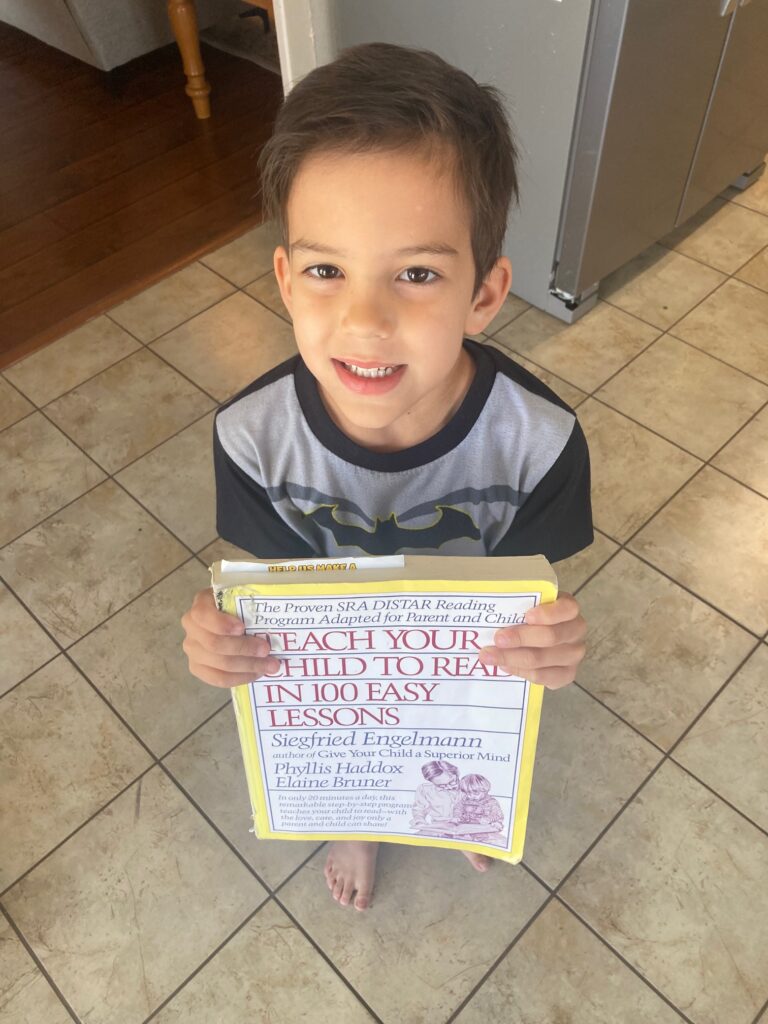 HELP US MAKE A
The Proven SRA DISTAR Reading
Program Adapted for Parent and Child
TEACH YOUR
CHILD TO READ
IN 100 EASY
LESSONS
Siegfried Engelmann
author of Give Your Child a Superior Mind
Phyllis Haddox
Elaine Bruner
In only 20 minutes a day, this
remarkable step-by-step program
teaches your child to read—with
the love, care, and joy only a
parent and child can share!